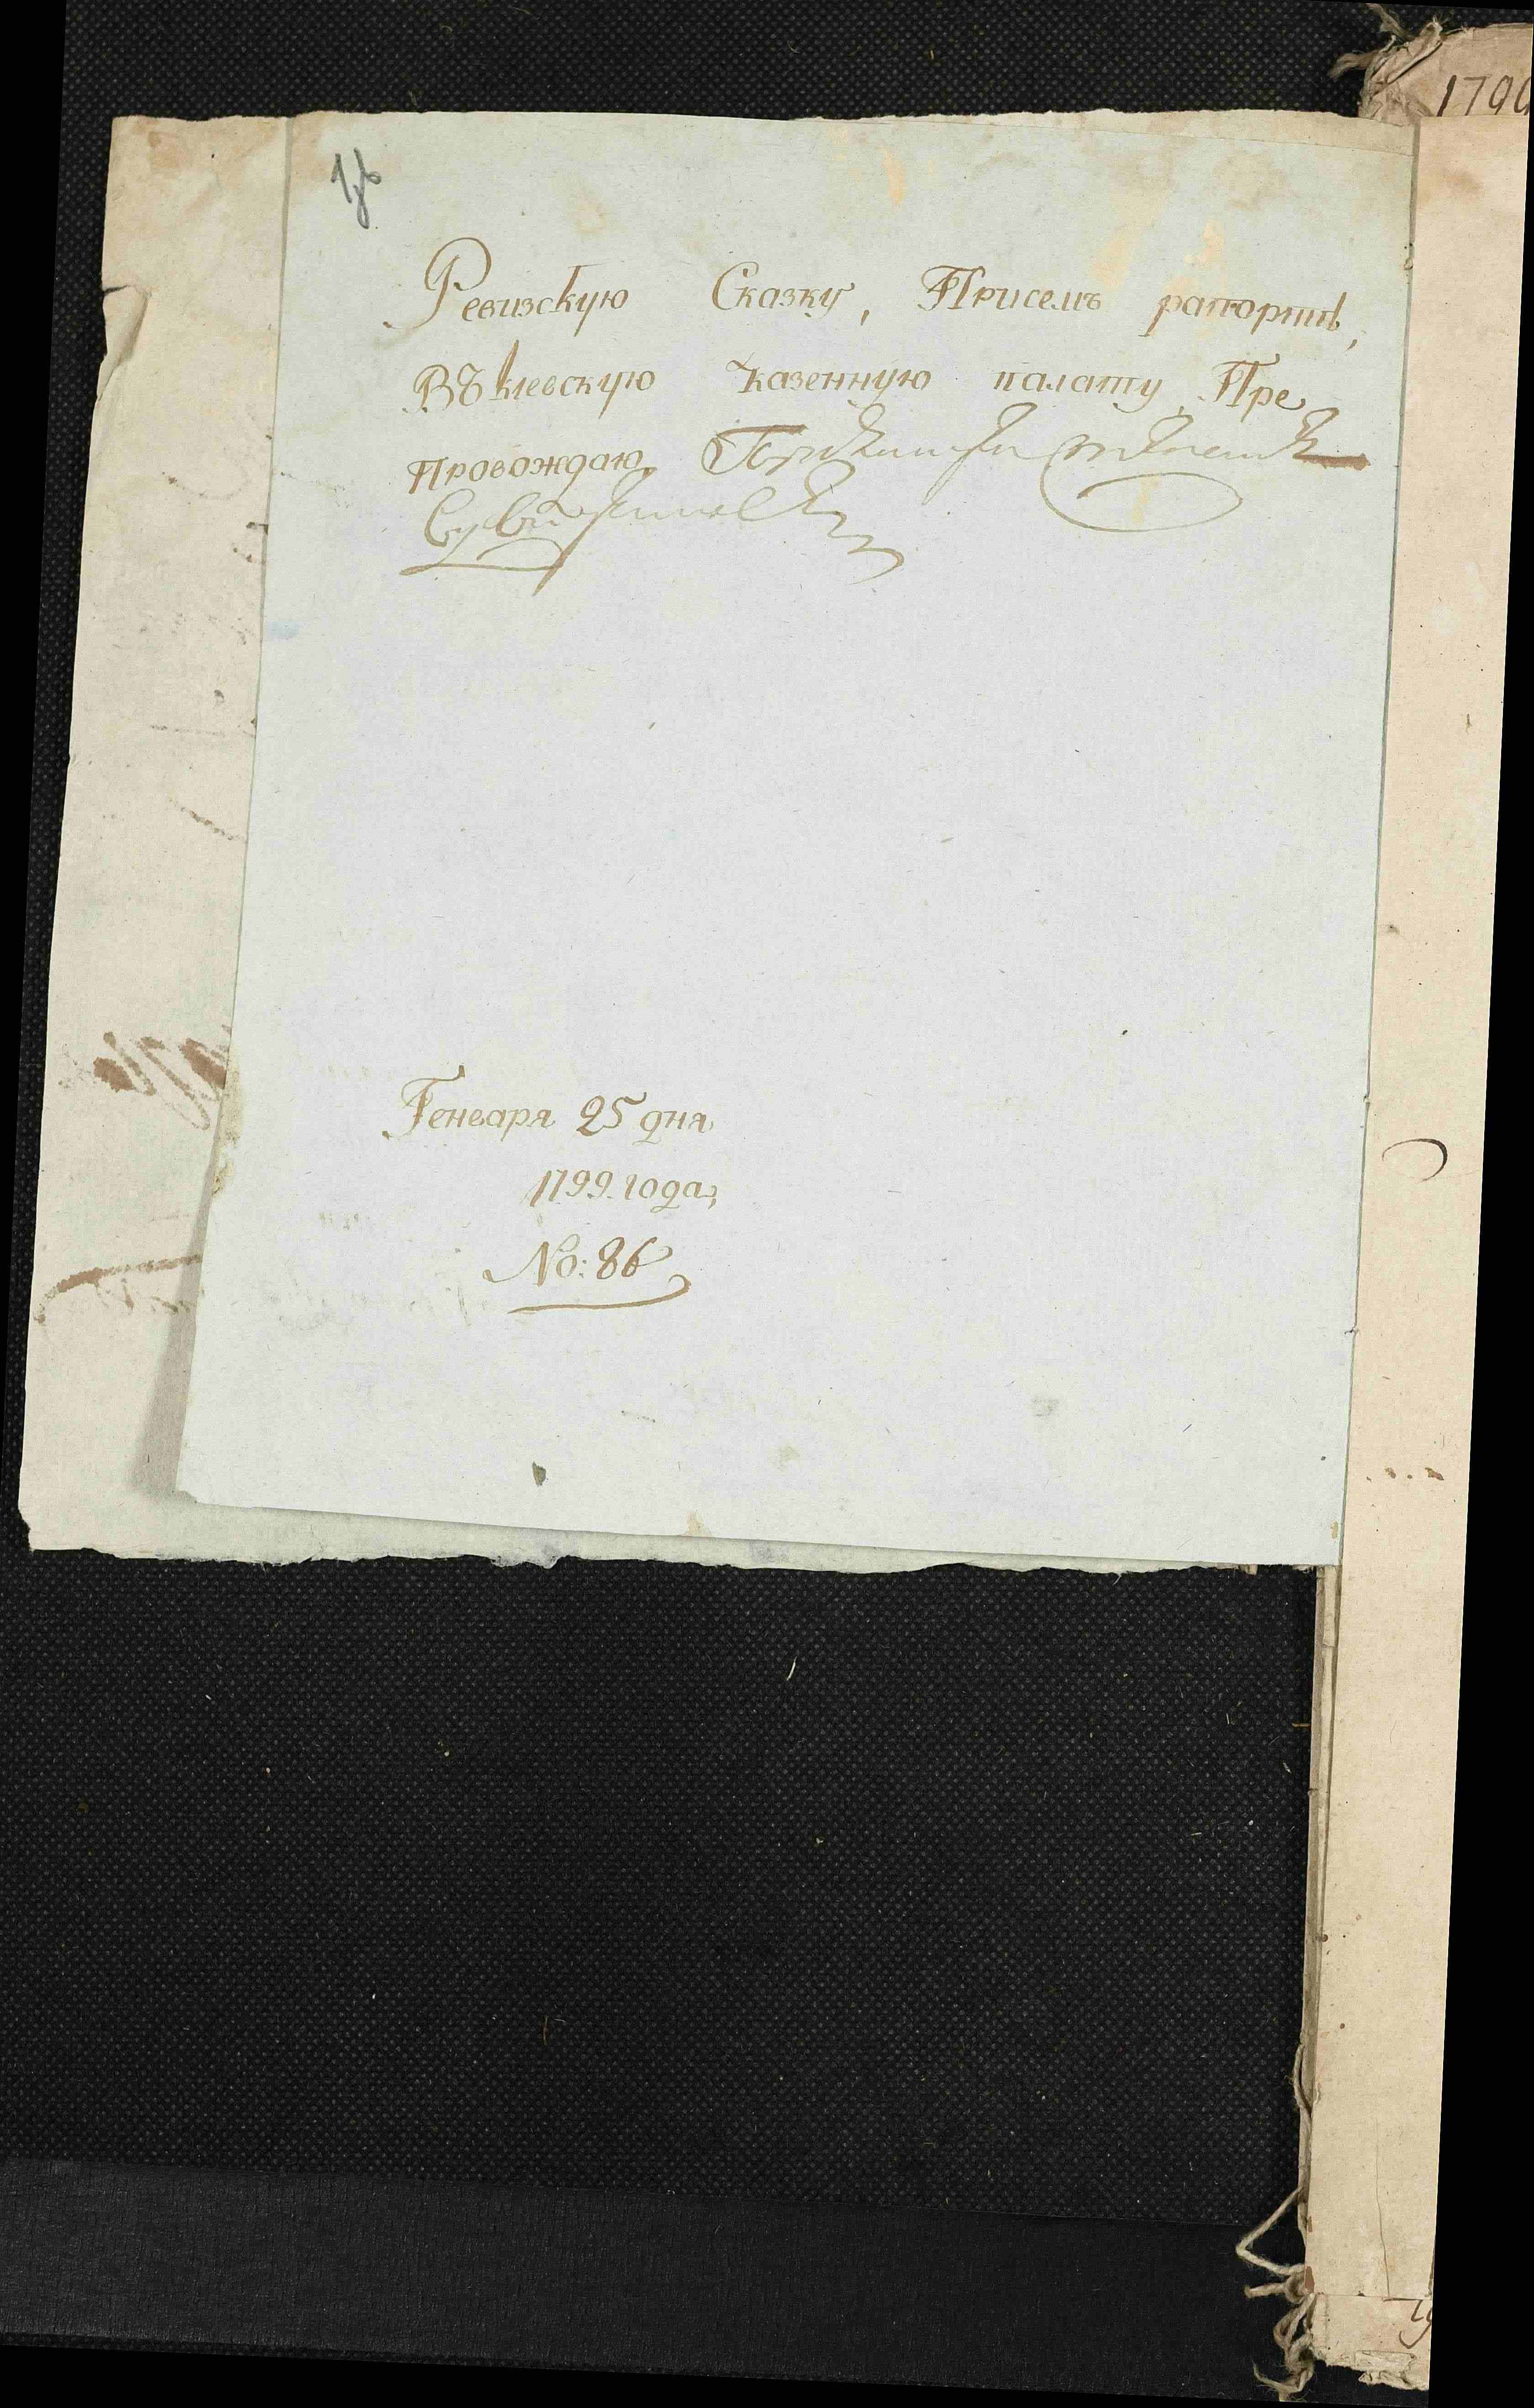 Ревизскую Сказку, Присемъ рапортѣ,
Въ киевскую казенную палату Пре
Провождаю,
Генваря 25 дня
1799. года,
No: 86